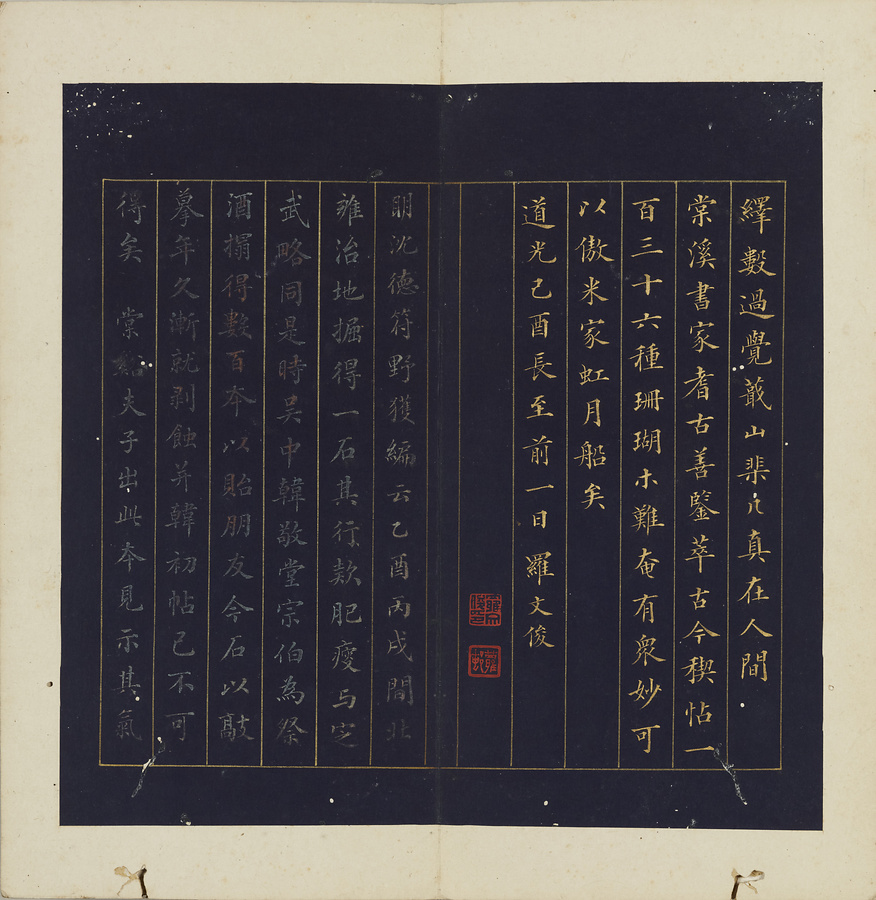 繹數過覺蕺山棐几真在人間
棠溪書家耆古善鑒萃古今稧帖一
百三十六種珊瑚木難奄有衆妙可
以傲米家虹月船矣
道光己酉長至前一日 羅文俊
明沈德符野獲編云乙酉丙戌間北
雍治地掘得一石其行款肥瘦与定
武略同是時吳中韓敬堂宗伯為祭
酒搨得數百本以貽朋友今石以敲
摹年久漸就剥蝕并韓初帖已不可
得矣 棠谿夫子出此本見示其氣